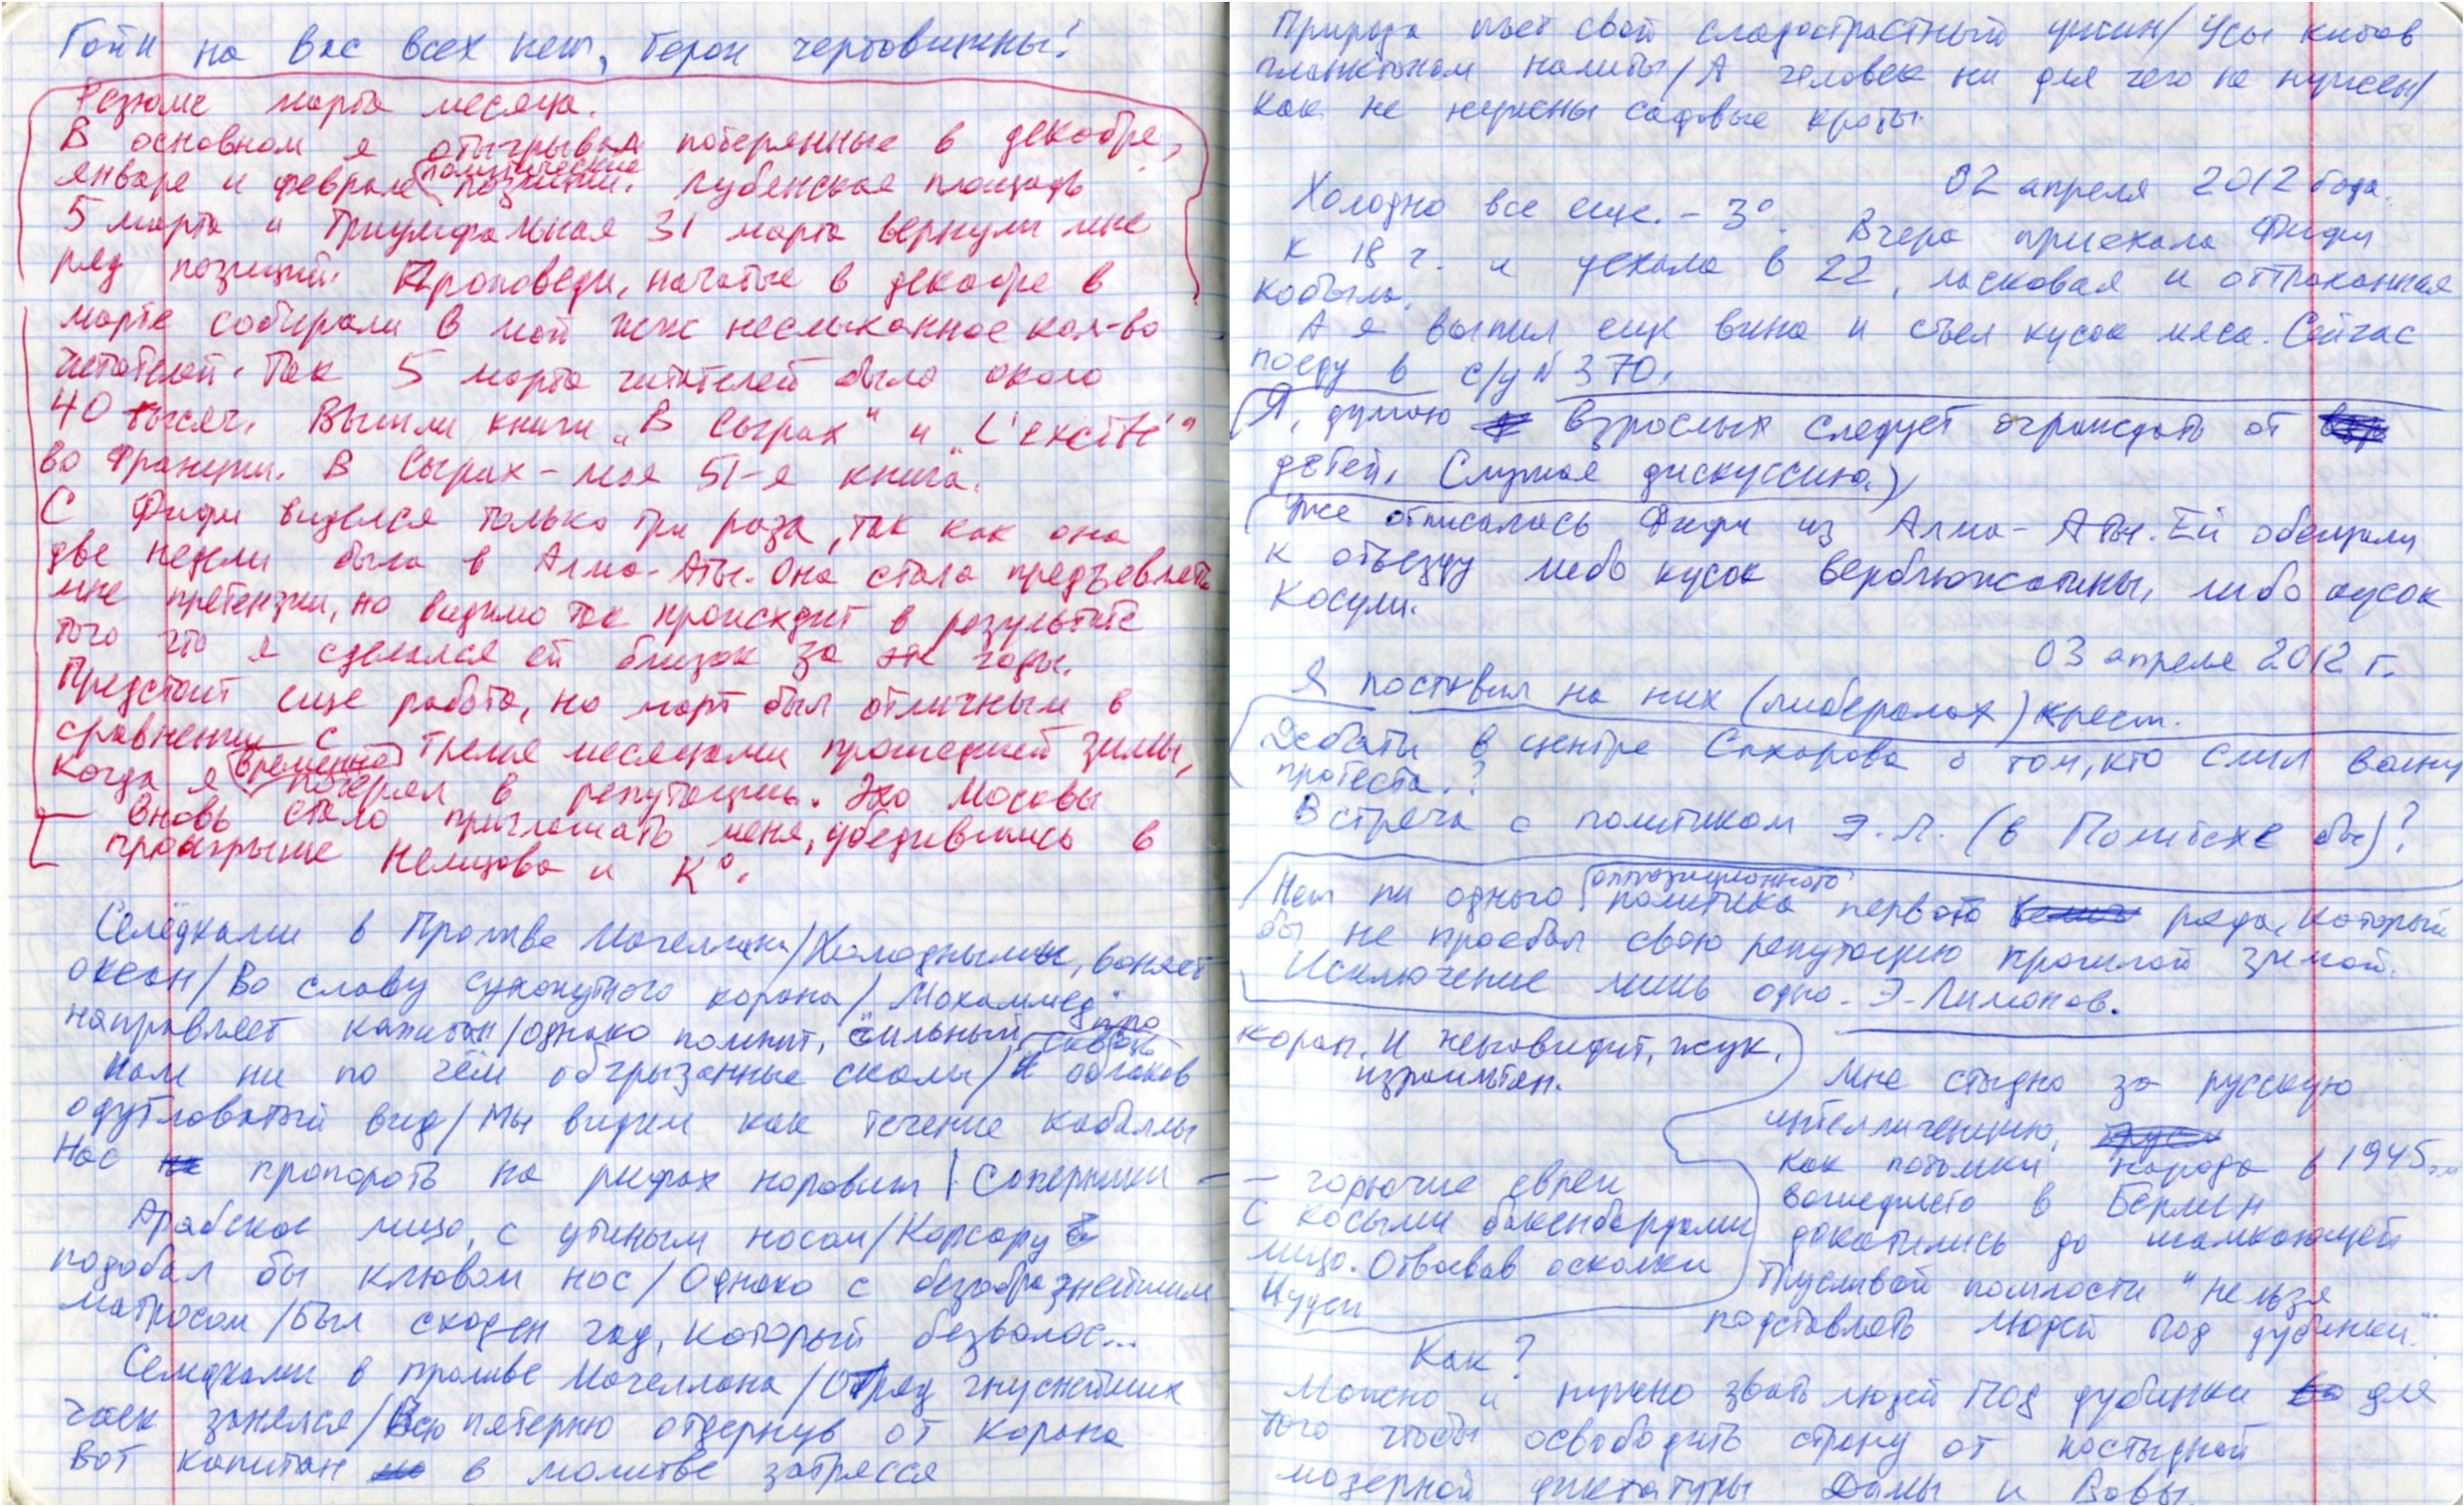 Гойи на вас всех нет, герои чертовщины!
Резюме марта месяца.
В основном я отыгрывал потерянные в декабре,
январе и феврале политические позиции. Лубянская площадь
5 марта и Триумфальная 31 марта вернули мне
ряд позиций. Проповеди, начатые в декабре в
марте собирали в мой жж неслыханное кол-во
читателей. Так 5 марта читателей было около
40 тысяч. Вышли книги „В Сырах" и
во Франции. В Сырах – моя 51-я книга.
С Фифи виделся только три раза, так как она
две недели была в Алма-Аты. Она стала предъявлять
мне претензии, но видимо так происходит в результате
того что я сделался ей близок за эти годы.
Предстоит еще работа, но март был отличным в
сравнении с тремя месяцами прошедшей зимы,
когда я временно потерял в репутации. Эхо Москвы
вновь стало приглашать меня, убедившись в
проигрыше Немцова и К°.
Селёдками в Проливе Магеллана/Холодными, воняет
океан/Во славу сухопутного корана/„Мохаммед"
направляет капитан/Однако помнит, сильный про
Нам ни по чём обгрызанные скалы/И облаков
одутловатый вид/Мы видим как течение кабаллы
Нас пропороть на рифах норовит/Соперники –
Арабское лицо, с утиным носом/Корсару
подобал бы клювом нос/Однако с безобразнейшим
матросом/Был сходен гад, который безволос...
Селёдками в проливе Магеллана/Отряд гнуснейших
чаек занялся/Всю пятерню отдернув от Корана
Вот капитан в молитве затрясся
Природа пьёт свой сладострастный ужин/Усы китов
планктоном налиты/А человек ни для чего не нужен/
Как не нужны садовые кроты.
02 апреля 2012 года.
Холодно все еще. – 3°. Вчера приехала Фифи
к 18 ч. и уехала в 22, ласковая и оттраханная
кобыла.
А я выпил еще вина и съел кусок мяса. Сейчас
поеду в с/у № 370.
Я, думаю взрослых следует ограждать от
детей. Слушая дискуссию.)
Уже отписалась Фифи из Алма-Аты. Ей обещали
к отъезду либо кусок верблюжатины, либо кусок
Косули.
03 апреля 2012 г.
Я поставил на них (либералах) крест.
Дебаты в центре Сахарова о том, кто слил волну
протеста.?
Встреча с политиком Э.Л. (в Политехе бы)?
Нет ни одного оппозиционного политика первого ряда, который
бы не проебал свою репутацию прошлой зимой.
Исключение лишь одно – Э. Лимонов.
коран. И ненавидит, жук,
израильтян.
– горючие евреи
С косыми бакенбардами
лицо. Отвоевав осколки
Иудеи
Мне стыдно за русскую
интеллигенцию,
как потомки народа в 1945
вошедшего в Берлин
докатились до шамкающей
трусливой пошлости "нельзя
подставлять людей под дубинки."
Как?
Можно и нужно звать людей под дубинки для
того чтобы освободить страну от постыдной
мизерной диктатуры Димы и Вовы.